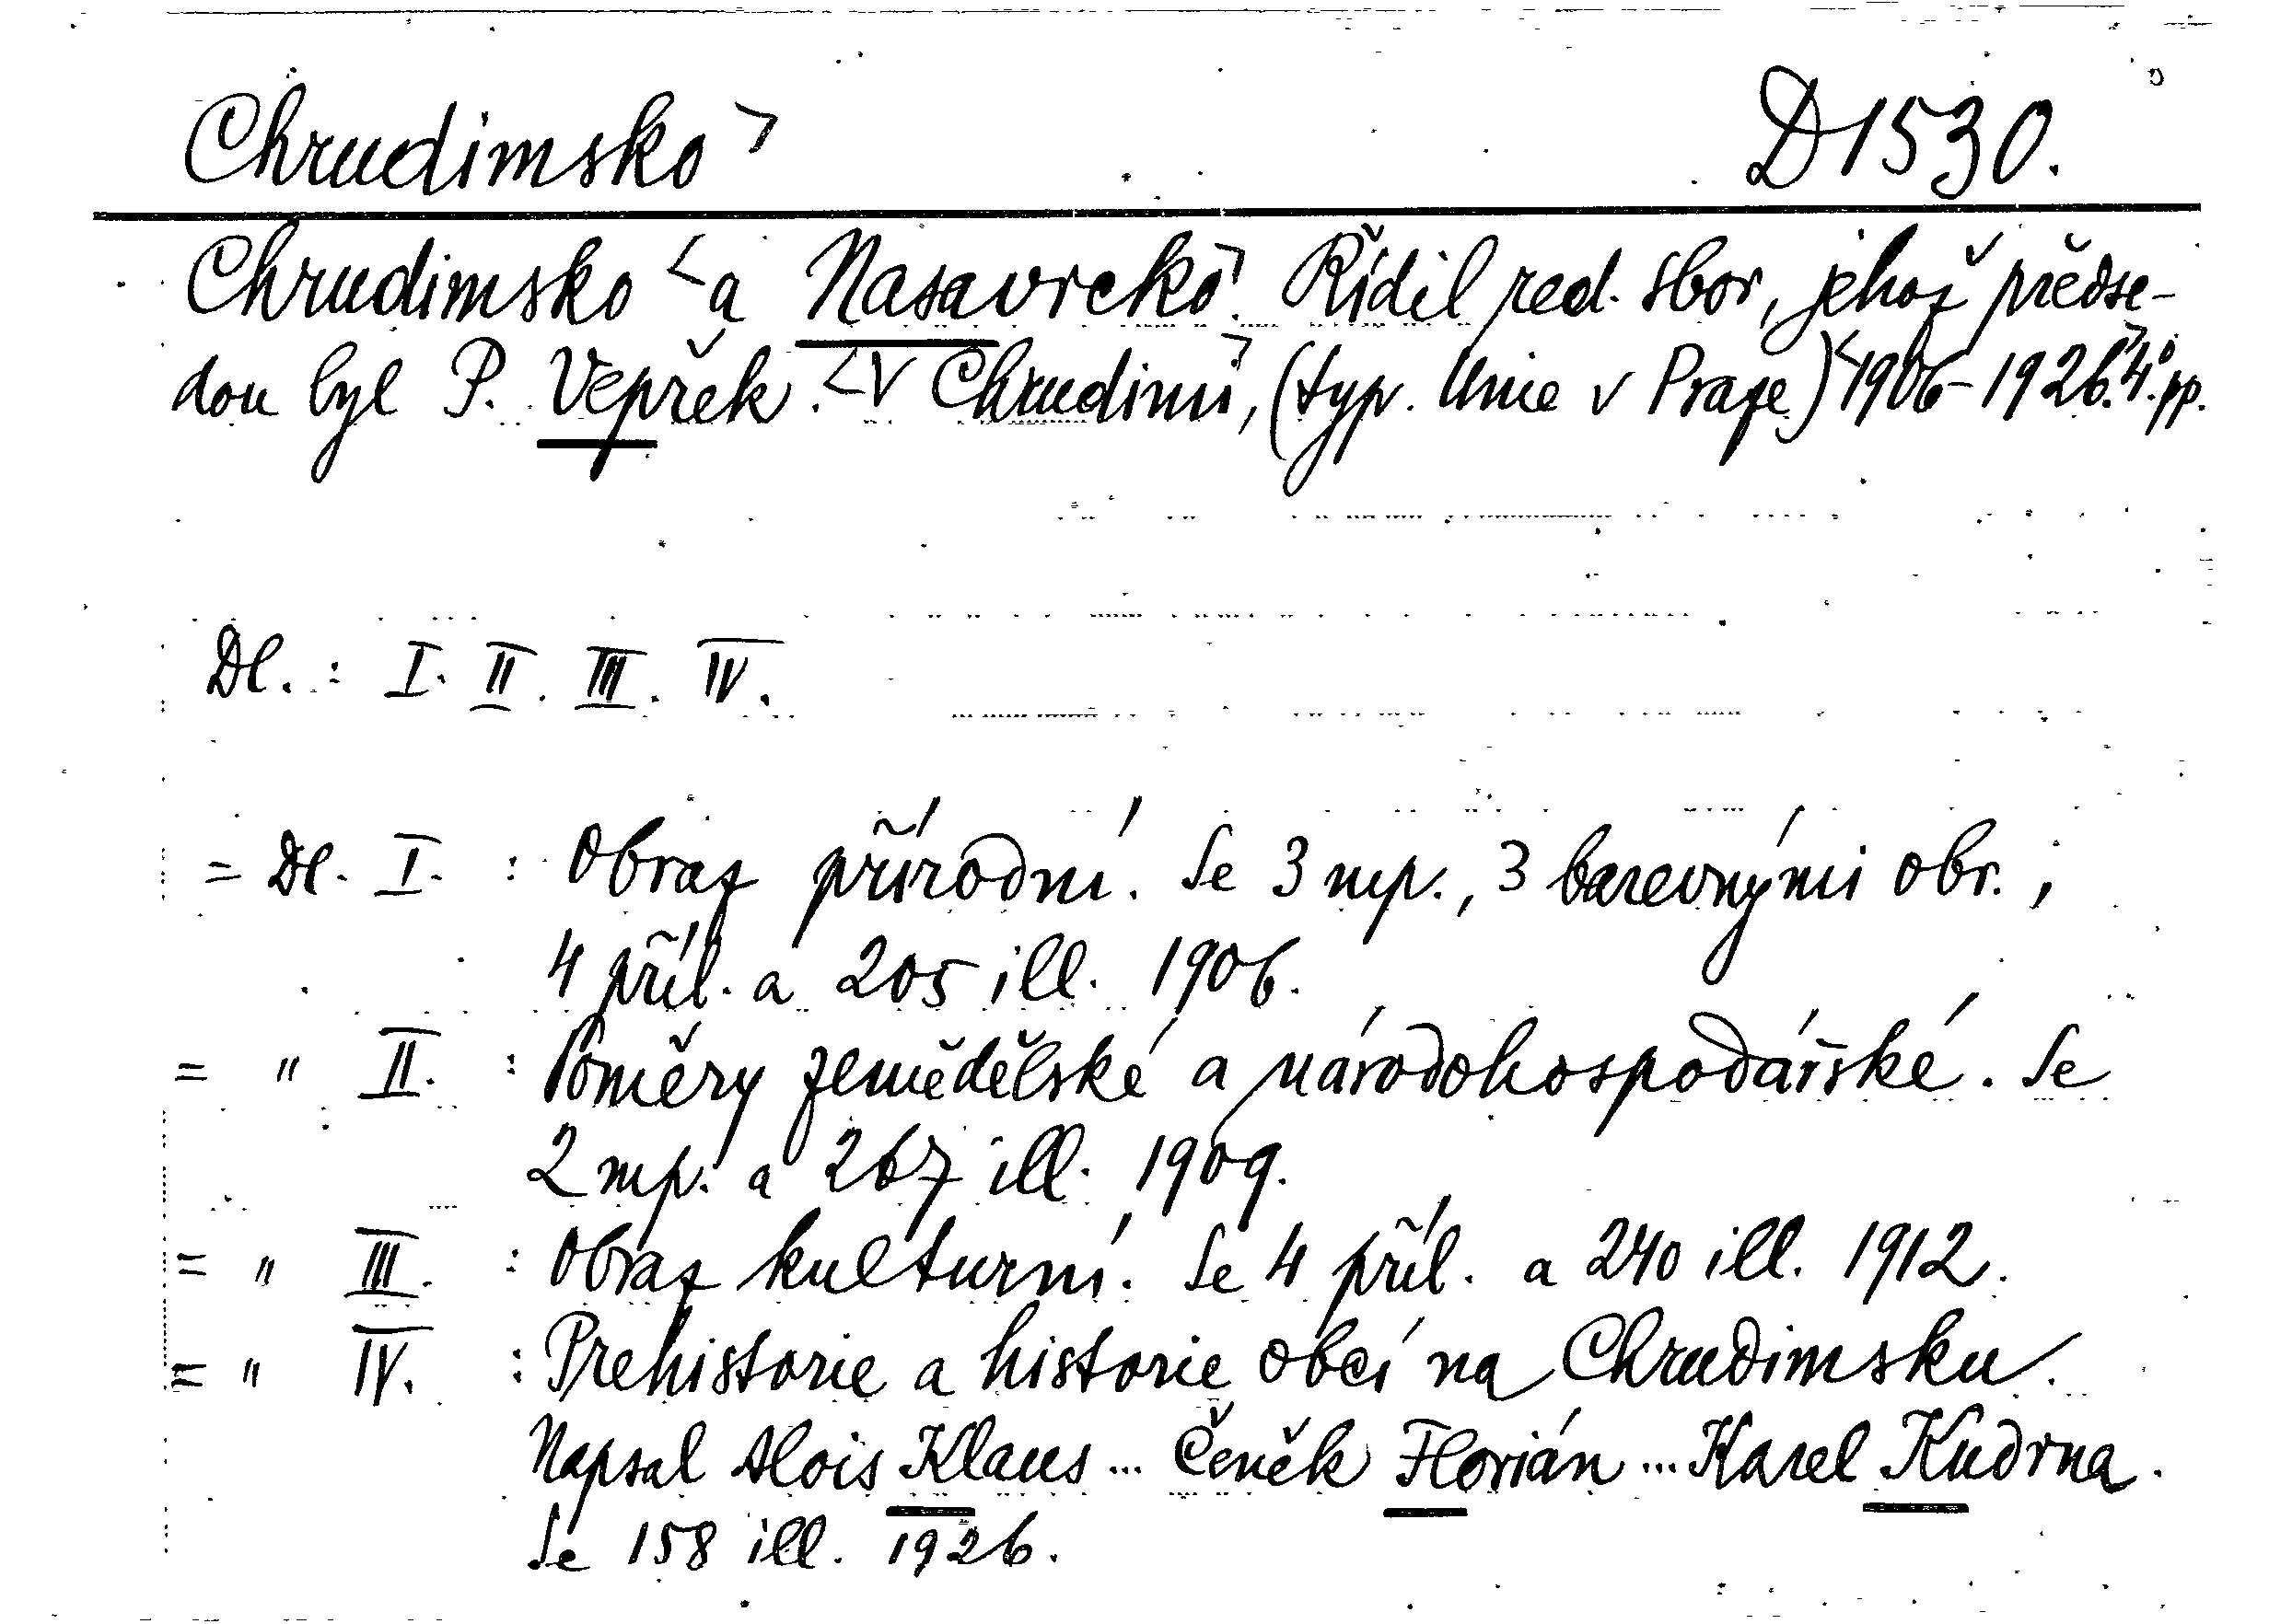 Chrudimsko ㄱ D1530.
Chrudimsko < a Nasavrcko ㄱ. Řídil red. sbor, jehož předse-
dou byl P. Vepřek. < V Chrudimi ㄱ, (typ. Unie v Praze) < 1906-1926 ㄱ. 4°. pp.
Dl. : I. II. III. IV.
= Dl. I. : Obraz přírodní. Se 3 mp., 3 barevnými obr.,
4 příl. a 205 ill. 1906.
= " II. : Poměry zemědělské a národohospodářské. Se
2 mp. a 267 ill. 1909.
= " III. : Obraz kulturní. Se 4 příl. a 240 ill. 1912.
= " IV. : Prehistorie a historie obcí na Chrudimsku.
Napsal Alois Klaus ... Čeněk Florián ... Karel Kudrna.
Se 158 ill. 1926.